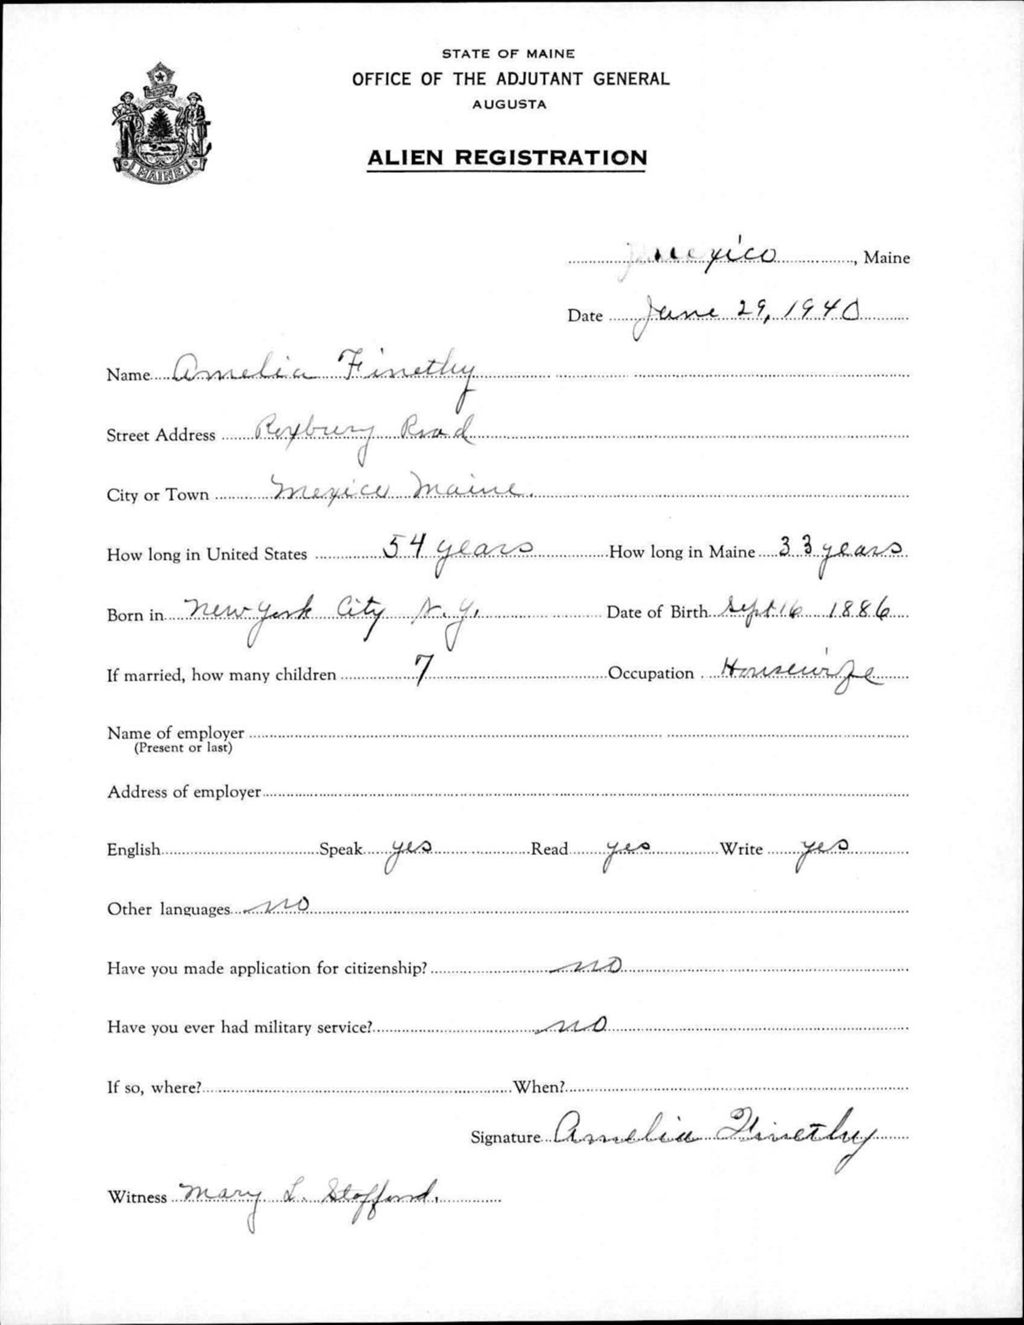 STATE OF MAINE
OFFICE OF THE ADJUTANT GENERAL
AUGUSTA
MAINE
ALIEN REGISTRATION
Mexico, Maine
Date June 29, 1940
Name Amelia Finethy
Street Address Roxbury Road
City or Town Mexico Maine.
How long in United States 54 years How long in Maine 33 years
Born in New York City N.Y. Date of Birth Sept 16 1886
If married, how many children 7 Occupation Housewife
Name of employer
(Present or last)
Address of employer
English Speak yes Read yes Write yes
Other languages no
Have you made application for citizenship? no
Have you ever had military service? no
If so, where? When?
Signature Amelia Finethy
Witness Mary L. Stafford.